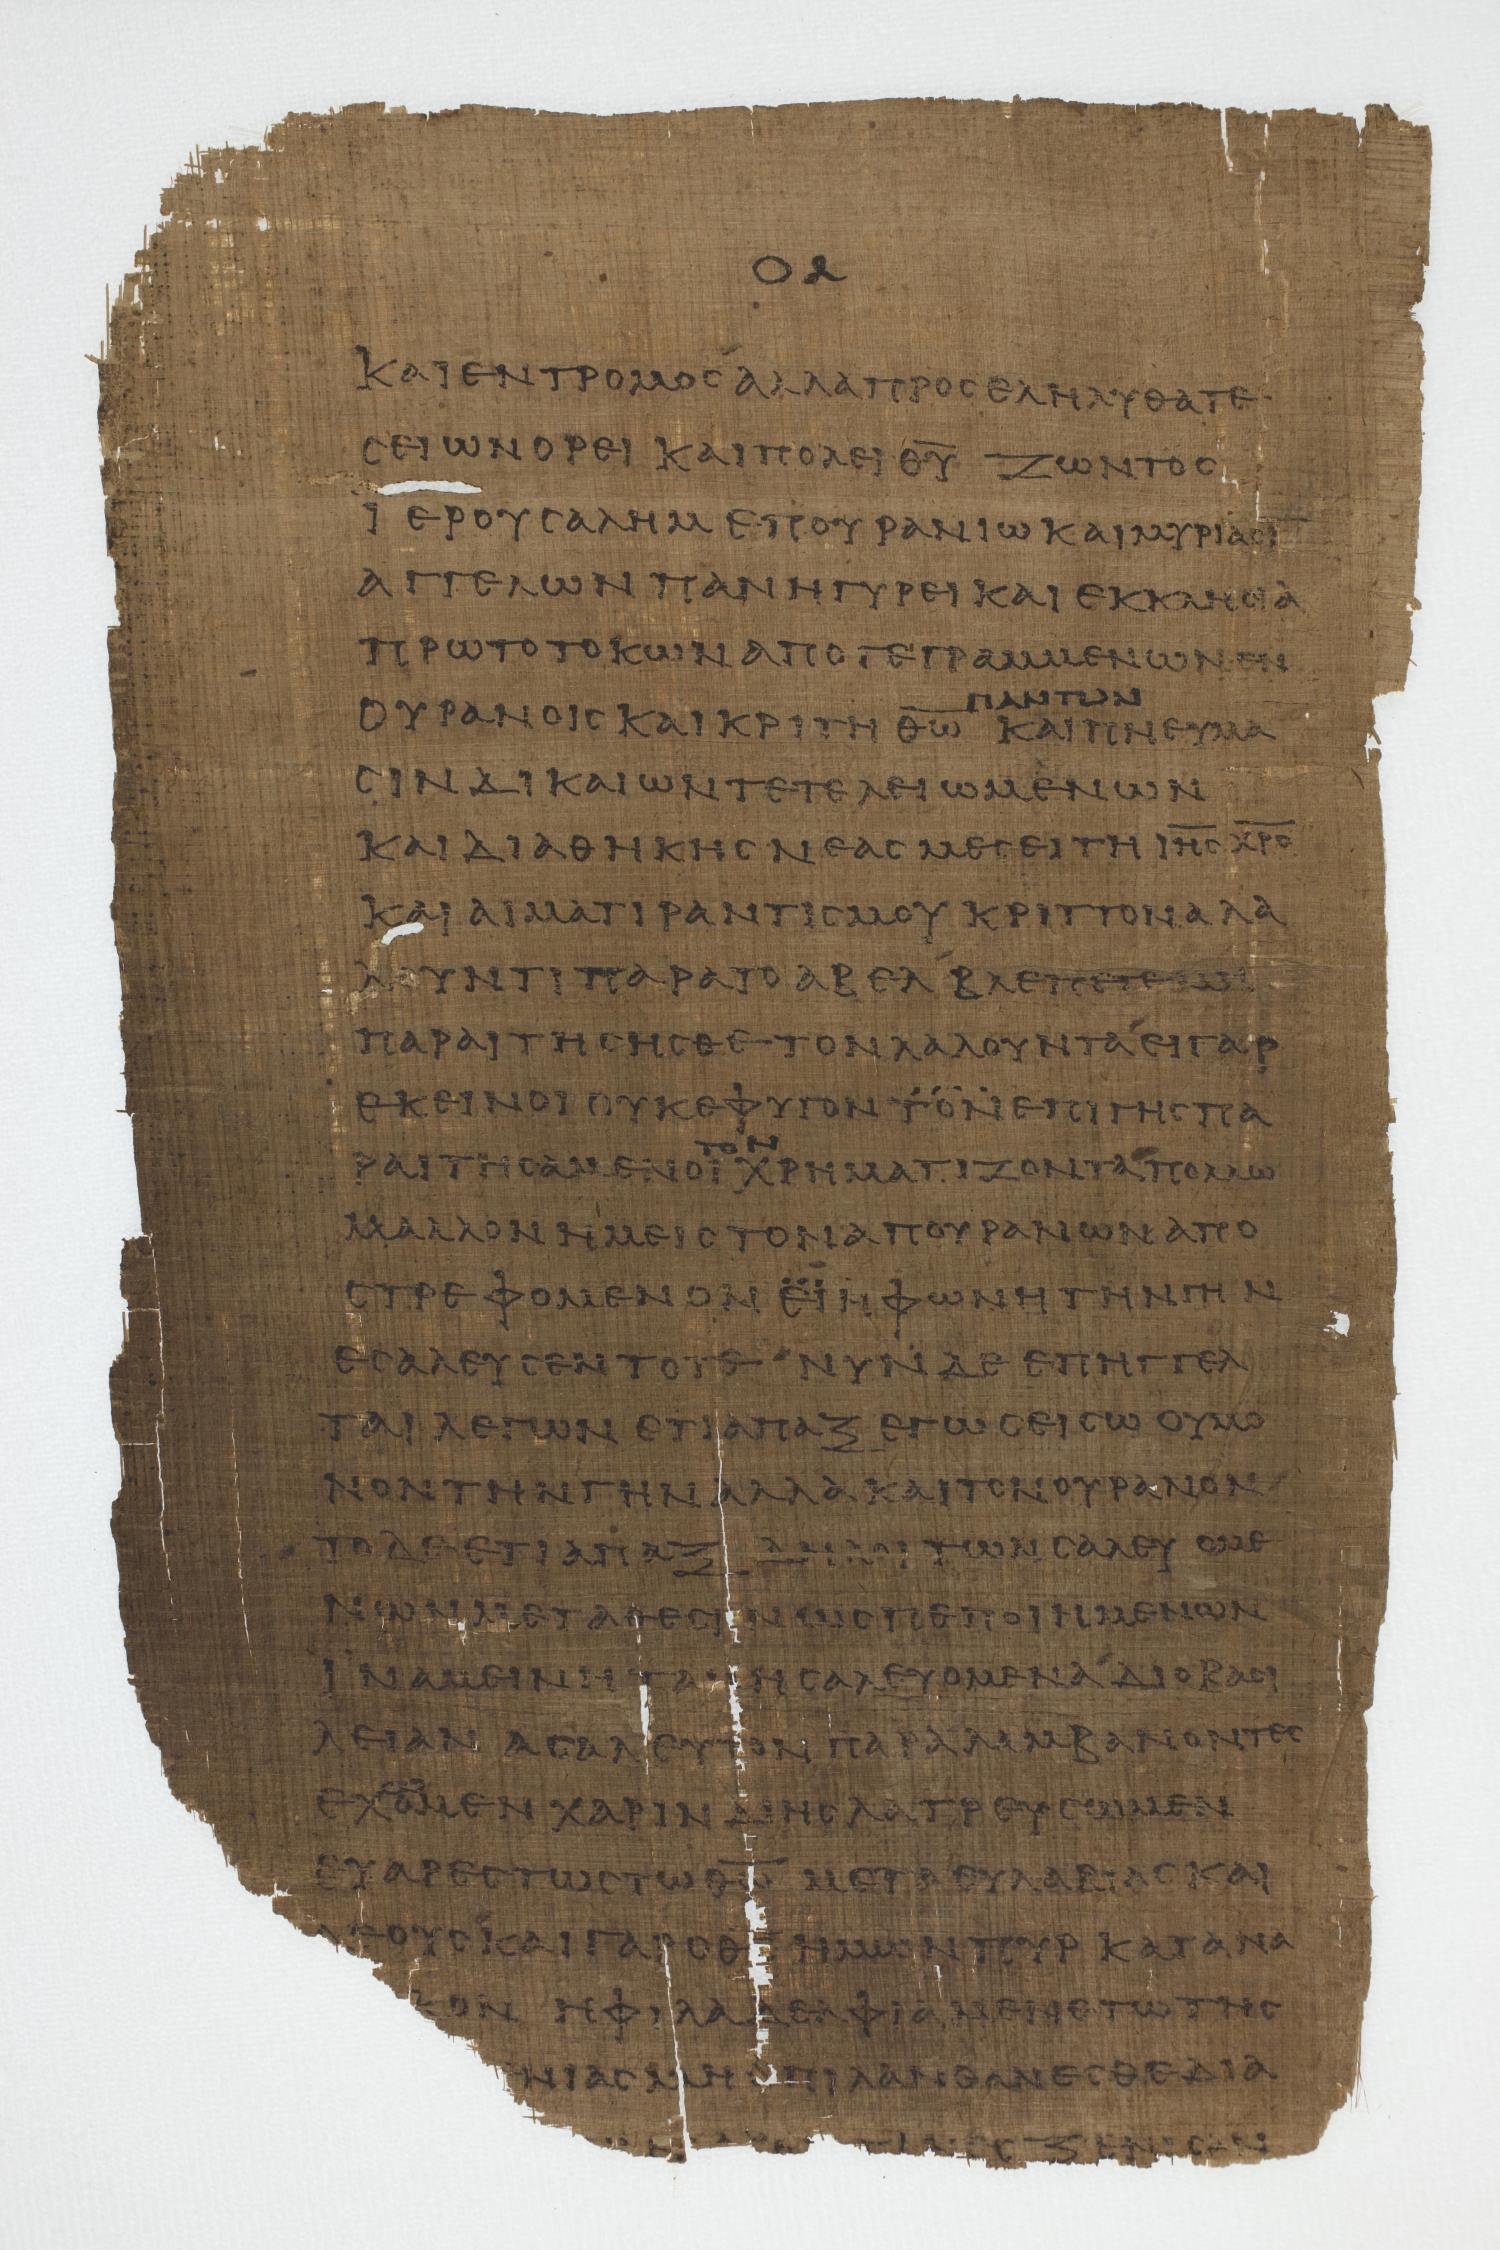 ΟΑ
ΚΑΙ ΕΝΤΡΟΜΟС ΑΛΛΑ ΠΡΟСΕΛΗΛΥΘΑΤΕ
СΕΙΩΝ ΟΡΕΙ ΚΑΙ ΠΟΛΕΙ Θ̅Υ̅ ΖΩΝΤΟС
ΙΕΡΟΥСΑΛΗΜ ΕΠΟΥΡΑΝΙΩ ΚΑΙ ΜΥΡΙΑСΙ
ΑΓΓΕΛΩΝ ΠΑΝΗΓΥΡΕΙ ΚΑΙ ΕΚΚΛΗСΙΑ
ΠΡΩΤΟΤΟΚΩΝ ΑΠΟΓΕΓΡΑΜΜΕΝΩΝ ΕΝ
ΠΑΝΤΩΝ
ΟΥΡΑΝΟΙС ΚΑΙ ΚΡΙΤΗ Θ̅Ω̅ ΚΑΙ ΠΝΕΥΜΑ
СΙΝ ΔΙΚΑΙΩΝ ΤΕΤΕΛΕΙΩΜΕΝΩΝ
ΚΑΙ ΔΙΑΘΗΚΗС ΝΕΑС ΜΕСΕΙΤΗ Ι̅Η̅С̅ Χ̅Ρ̅Ο̅
ΚΑΙ ΑΙΜΑΤΙ ΡΑΝΤΙСΜΟΥ ΚΡΙΤΤΟΝΑ ΛΑ
ΛΟΥΝΤΙ ΠΑΡΑ ΤΟ ΑΒΕΛ ΒΛΕΠΕΤΕ ΜΗ
ΠΑΡΑΙΤΗСΗСΘΕ ΤΟΝ ΛΑΛΟΥΝΤΑ ΕΙ ΓΑΡ
ΕΚΕΙΝΟΙ ΟΥΚ ΕΦΥΓΟΝ ΤΟΝ ΕΠΙ ΓΗС ΠΑ
ΤΟΝ
ΡΑΙΤΗСΑΜΕΝΟΙ ΧΡΗΜΑΤΙΖΟΝΤΑ ΠΟΛΛΩ
ΜΑΛΛΟΝ ΗΜΕΙС ΤΟΝ ΑΠ ΟΥΡΑΝΩΝ ΑΠΟ
СΤΡΕΦΟΜΕΝΟΝ ΕΙ Η ΦΩΝΗ ΤΗΝ ΓΗΝ
ΕСΑΛΕΥСΕΝ ΤΟΤΕ ΝΥΝ ΔΕ ΕΠΗΓΓΕΛ
ΤΑΙ ΛΕΓΩΝ ΕΤΙ ΑΠΑΞ ΕΓΩ СΕΙСΩ ΟΥ ΜΟ
ΝΟΝ ΤΗΝ ΓΗΝ ΑΛΛΑ ΚΑΙ ΤΟΝ ΟΥΡΑΝΟΝ
ΤΟ ΔΕ ΕΤΙ ΑΠΑΞ ΔΗΛΟΙ ΤΩΝ СΑΛΕΥΟΜΕ
ΝΩΝ ΜΕΤΑΘΕСΙΝ ΩС ΠΕΠΟΙΗΜΕΝΩΝ
ΙΝΑ ΜΕΙΝΗ ΤΑ ΜΗ СΑΛΕΥΟΜΕΝΑ ΔΙΟ ΒΑСΙ
ΛΕΙΑΝ ΑСΑΛΕΥΤΟΝ ΠΑΡΑΛΑΜΒΑΝΟΝΤΕС
ΕΧΟΜΕΝ ΧΑΡΙΝ ΔΙ ΗС ΛΑΤΡΕΥСΩΜΕΝ
ΕΥΑΡΕСΤΩС ΤΩ Θ̅Ω̅ ΜΕΤΑ ΕΥΛΑΒΙΑС ΚΑΙ
ΔΕΟΥС ΚΑΙ ΓΑΡ Ο Θ̅С̅ ΗΜΩΝ ΠΥΡ ΚΑΤΑΝΑ
ΚΟΝ Η ΦΙΛΑΔΕΛΦΙΑ ΜΕΝΕΤΩ ΤΗС
ΝΙΑС ΜΗ ΕΠΙΛΑΝΘΑΝΕСΘΕ ΔΙΑ
ΞΕΝΙСΑΝ